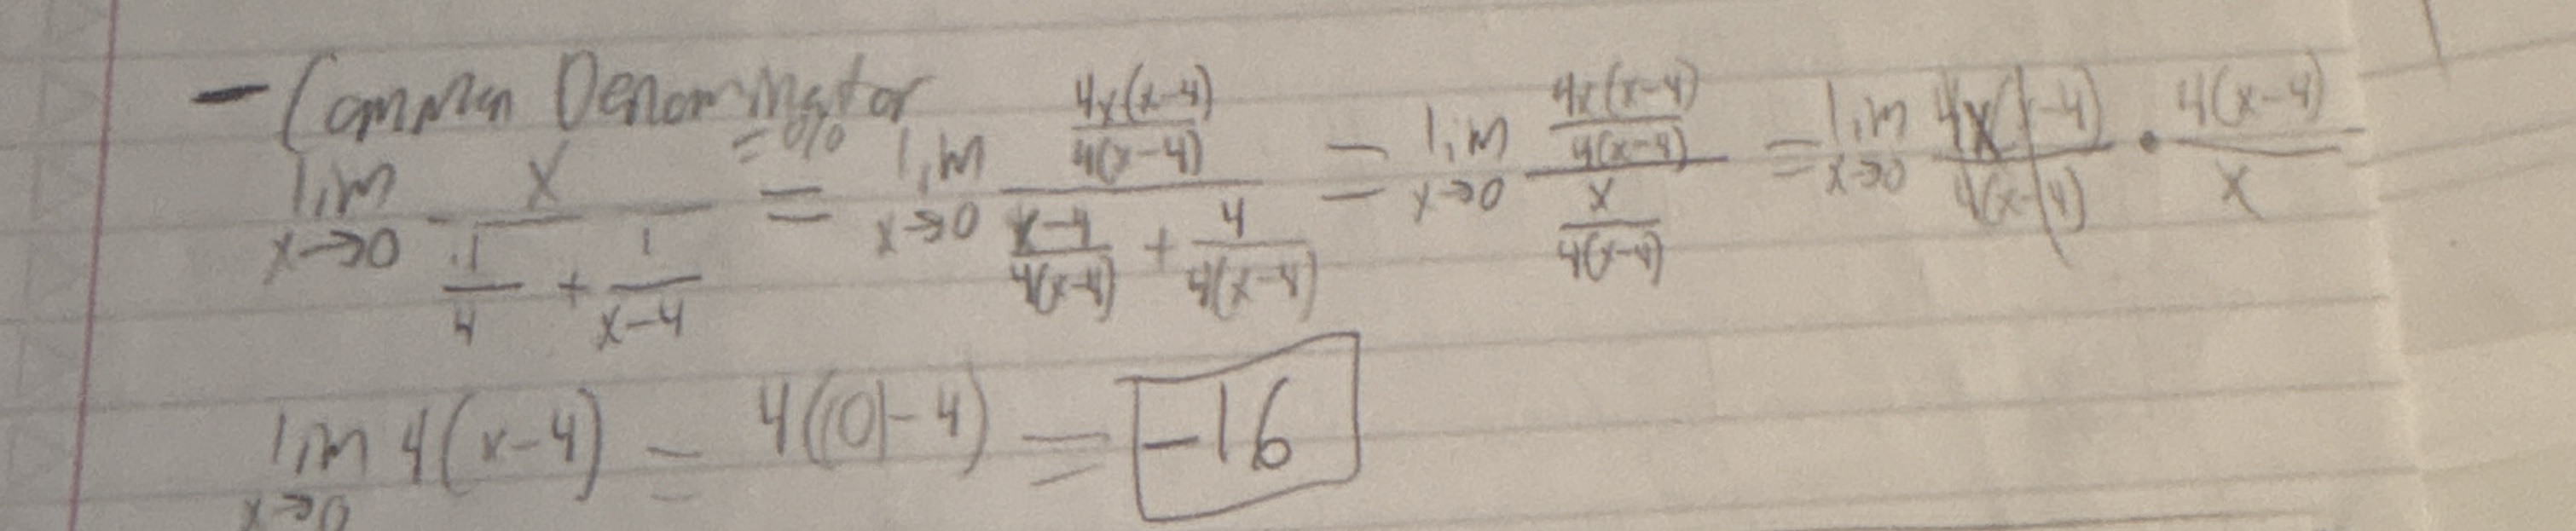 - Common Denominator
lim x→0 x / (1/4 + 1/(x-4)) = 0/0 = lim x→0 (4x(x-4)/4(x-4)) / ((x-4)/4(x-4) + 4/4(x-4)) = lim x→0 (4x(x-4)/4(x-4)) / (x/4(x-4)) = lim x→0 4x(x-4)/4(x-4) • 4(x-4)/x
lim x→0 4(x-4) = 4((0)-4) = -16